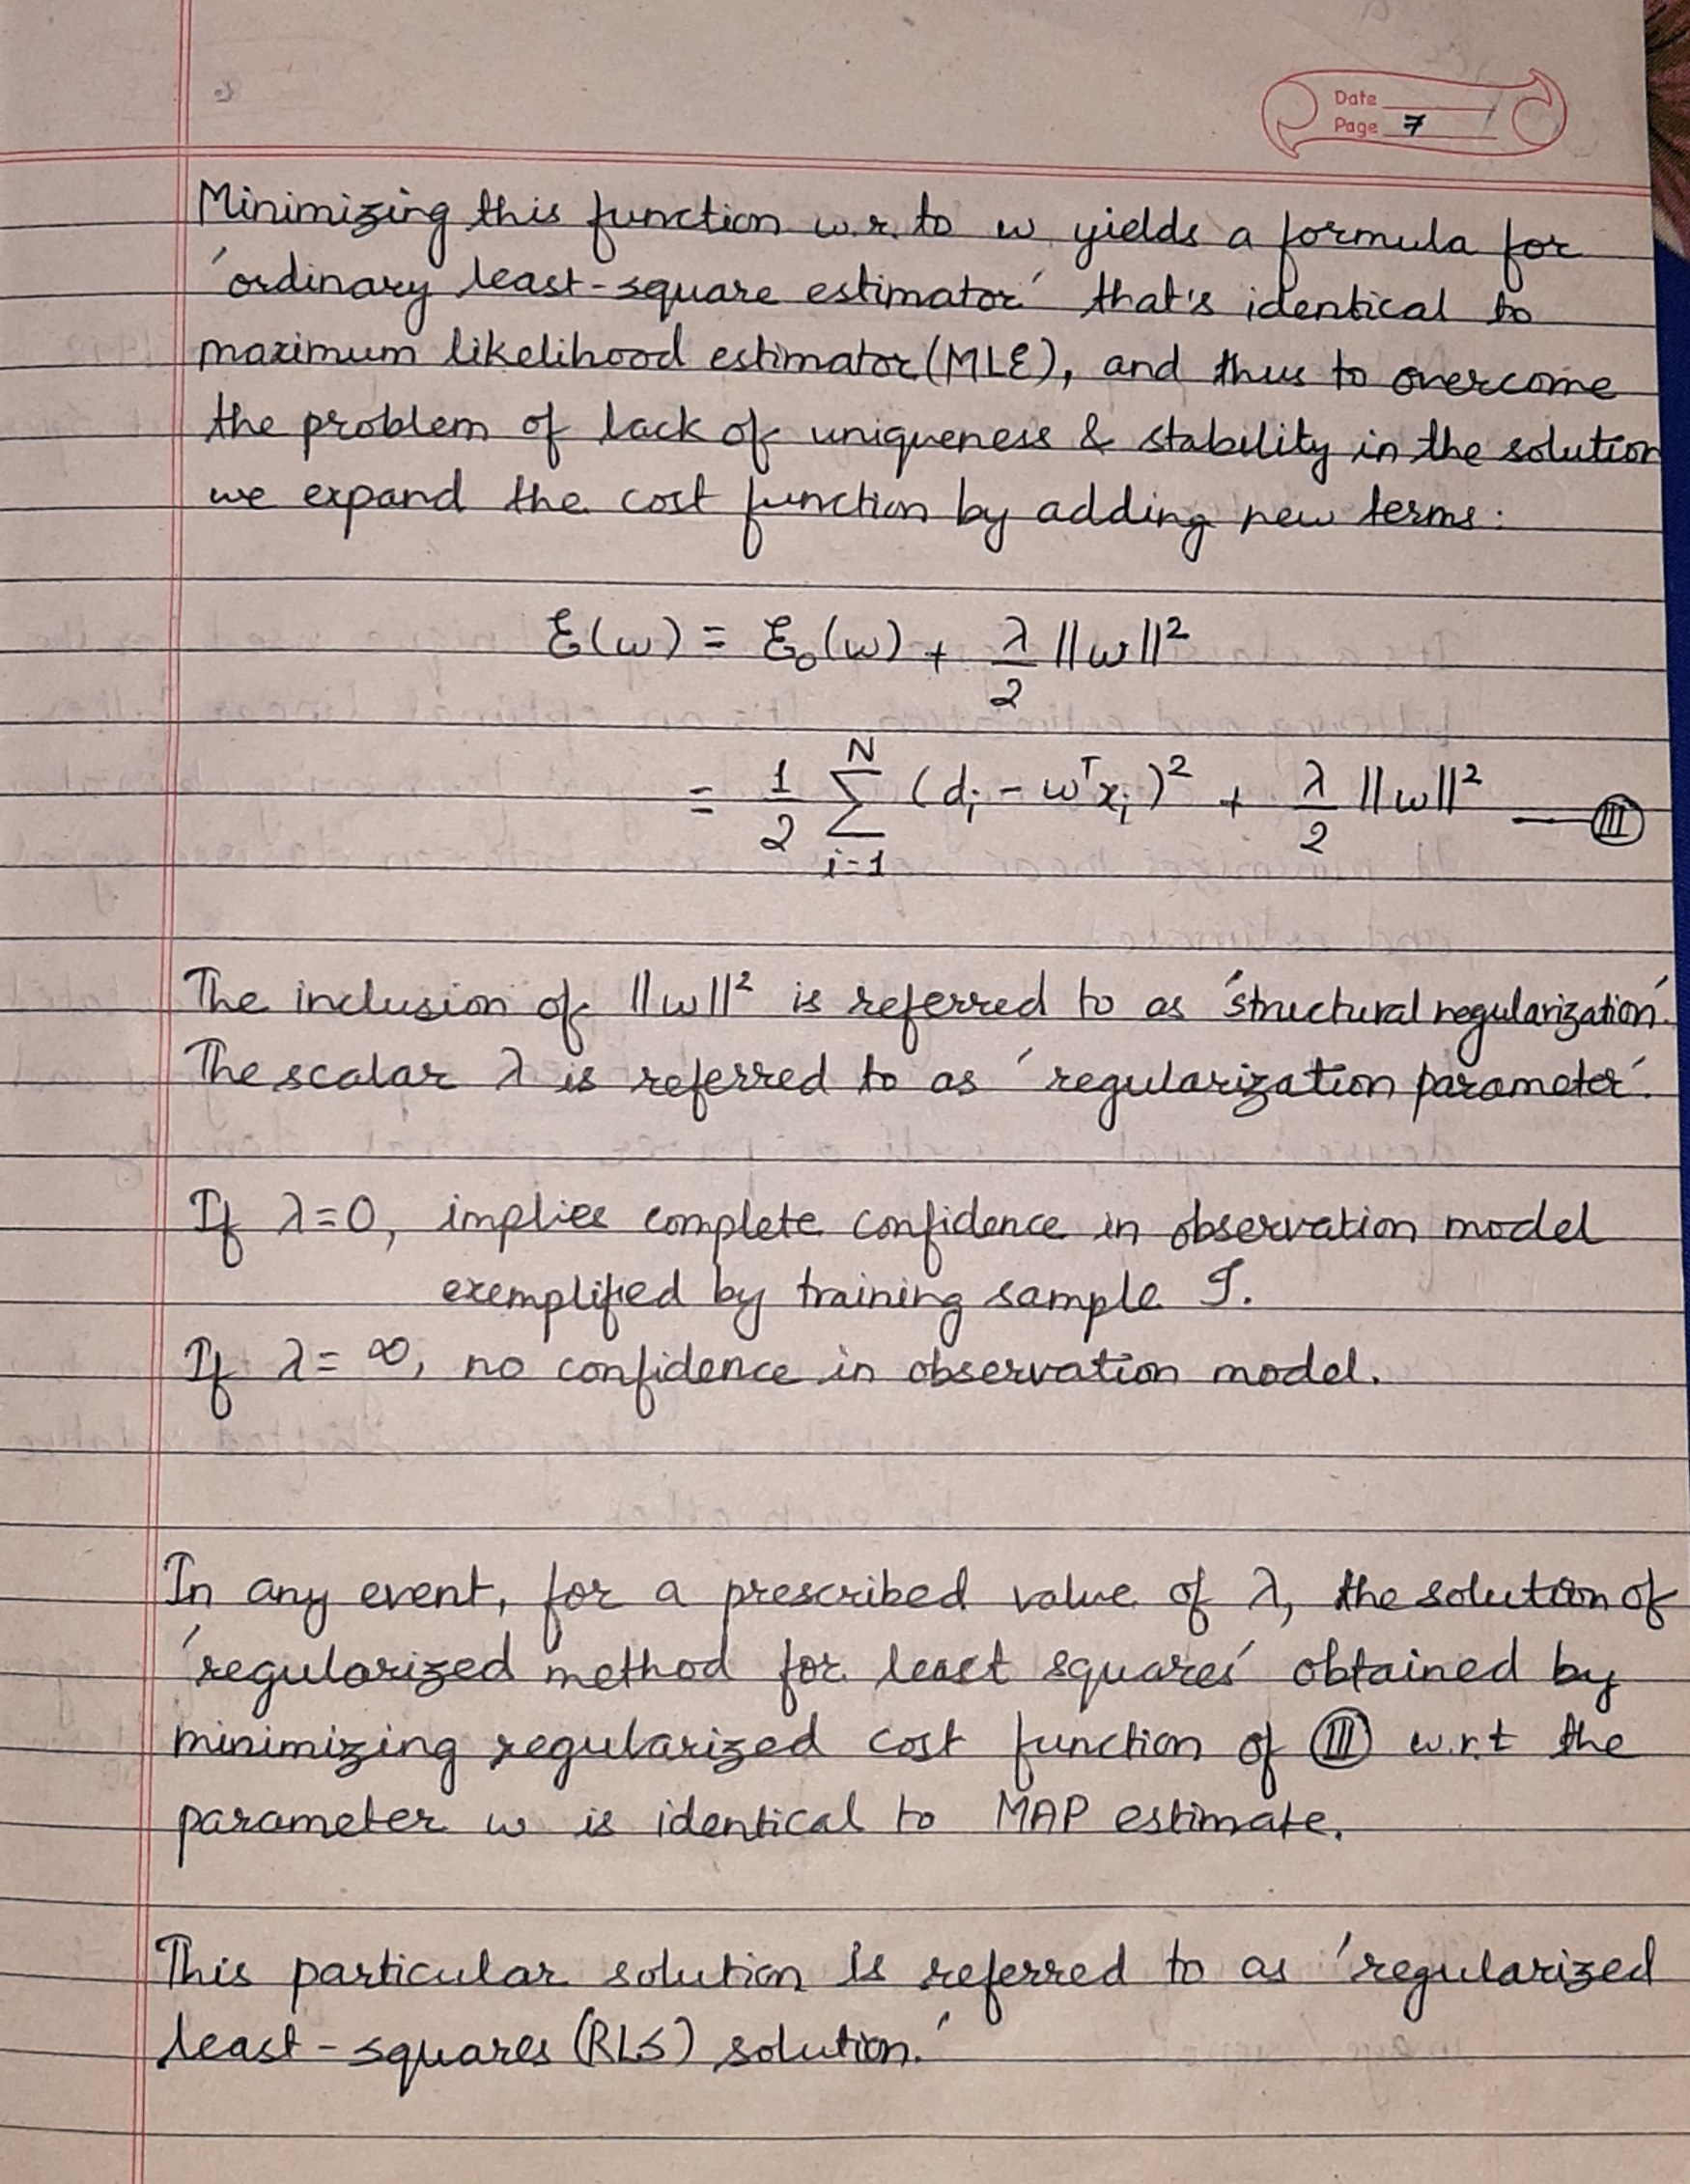 Date
Page 7
Minimizing this function w.r. to w yields a formula for
'ordinary least-square estimator' that's identical to
maximum likelihood estimator (MLE), and thus to overcome
the problem of lack of uniqueness & stability in the solution
we expand the cost function by adding new terms:
ℰ(w) = ℰ₀(w) + λ/2 ||w||²
= 1/2 Σ_{i=1}^{N} (dᵢ - wᵀxᵢ)² + λ/2 ||w||² — (III)
The inclusion of ||w||² is referred to as 'structural regularization'.
The scalar λ is referred to as 'regularization parameter'.
If λ=0, implies complete confidence in observation model
exemplified by training sample 𝒯.
If λ = ∞, no confidence in observation model.
In any event, for a prescribed value of λ, the solution of
'regularized method for least squares' obtained by
minimizing regularized cost function of (III) w.r.t the
parameter w is identical to MAP estimate.
This particular solution is referred to as 'regularized
least-squares (RLS) solution.'